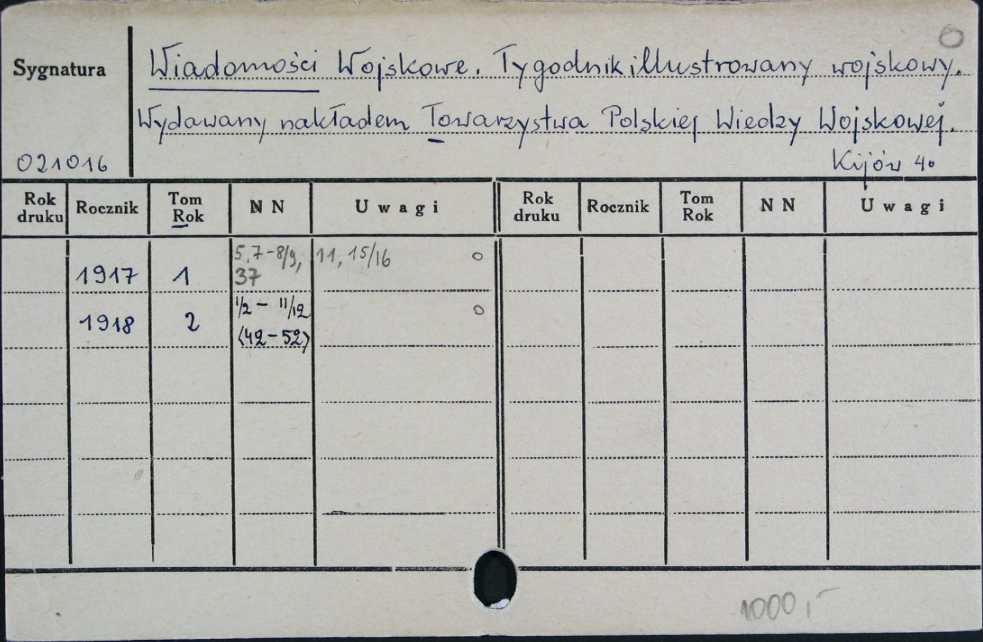 Sygnatura
Wiadomości Wojskowe. Tygodnik illustrowany wojskowy.
Wydawany nakładem Towarzystwa Polskiej Wiedzy Wojskowej.
021016
Kijów 4o
Rok druku Rocznik Tom Rok N N Uwagi Rok druku Rocznik Tom Rok N N Uwagi
5, 7-8/9, 11, 15/16
1917 1 37
1/2 - 11/12
1918 2
(42-52)
1000,-